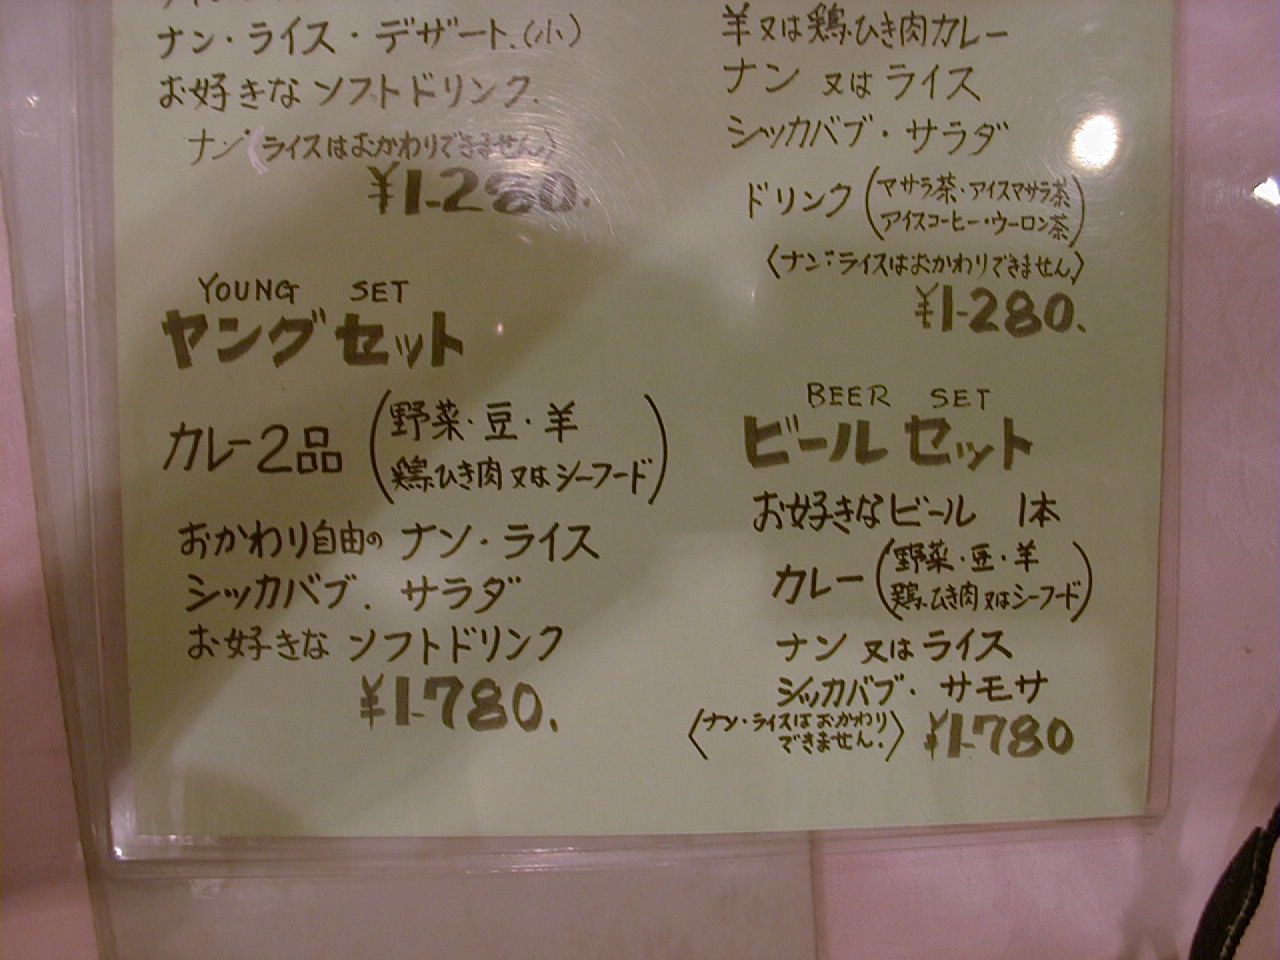 ナン・ライス・デザート.(小)
お好きな ソフトドリンク.
ナン(ライスはおかわりできません)
¥1-280.
YOUNG SET
ヤングセット
カレー2品(野菜・豆・羊
鶏ひき肉又はシーフード)
おかわり自由の ナン・ライス
シッカバブ. サラダ
お好きな ソフトドリンク
¥1-780.
羊又は鶏ひき肉カレー
ナン 又は ライス
シッカバブ・サラダ
ドリンク(マサラ茶・アイスマサラ茶
アイスコーヒー・ウーロン茶)
〈ナン・ライスはおかわりできません.〉
¥1-280.
BEER SET
ビールセット
お好きなビール 1本
カレー(野菜・豆・羊
鶏ひき肉又はシーフード)
ナン 又は ライス
シッカバブ・サモサ
〈ナン・ライスはおかわり
できません.〉
¥1-780